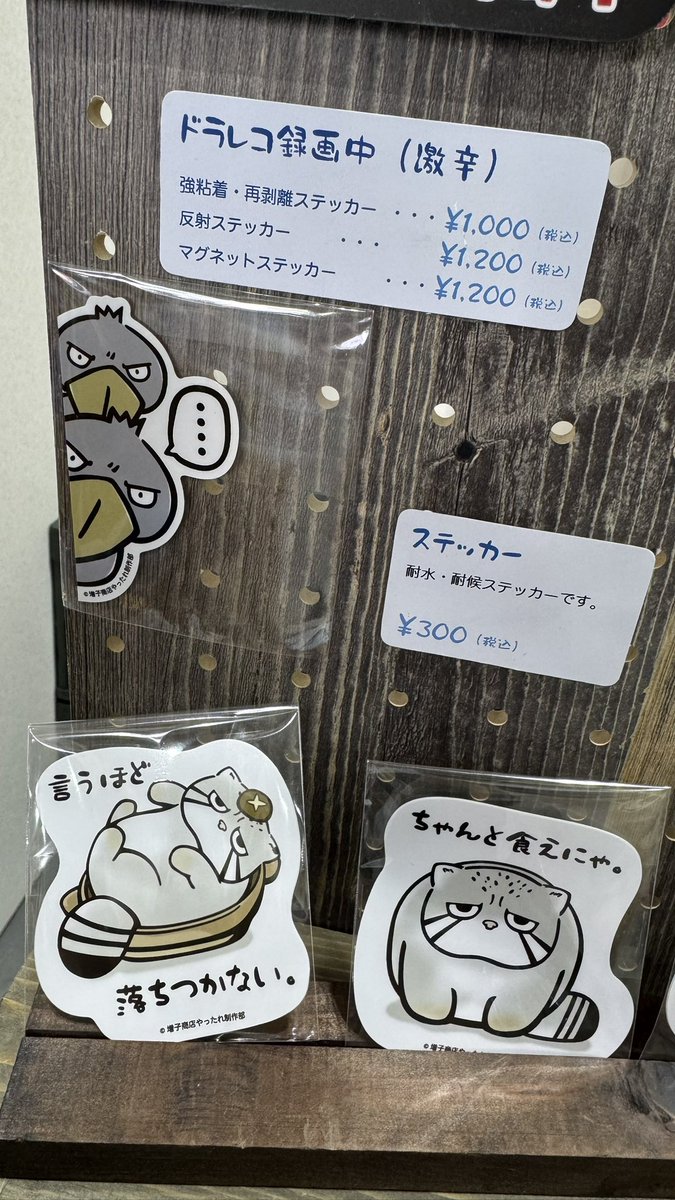 ドラレコ録画中(激辛)
強粘着・再剥離ステッカー ・・・¥1,000(税込)
反射ステッカー ・・・¥1,200(税込)
マグネットステッカー ・・・¥1,200(税込)
・・・・
©増子商店やったれ制作部
ステッカー
耐水・耐候ステッカーです。
¥300(税込)
言うほど
落ちつかない。
©増子商店やったれ制作部
ちゃんと食えにゃ。
©増子商店やったれ制作部